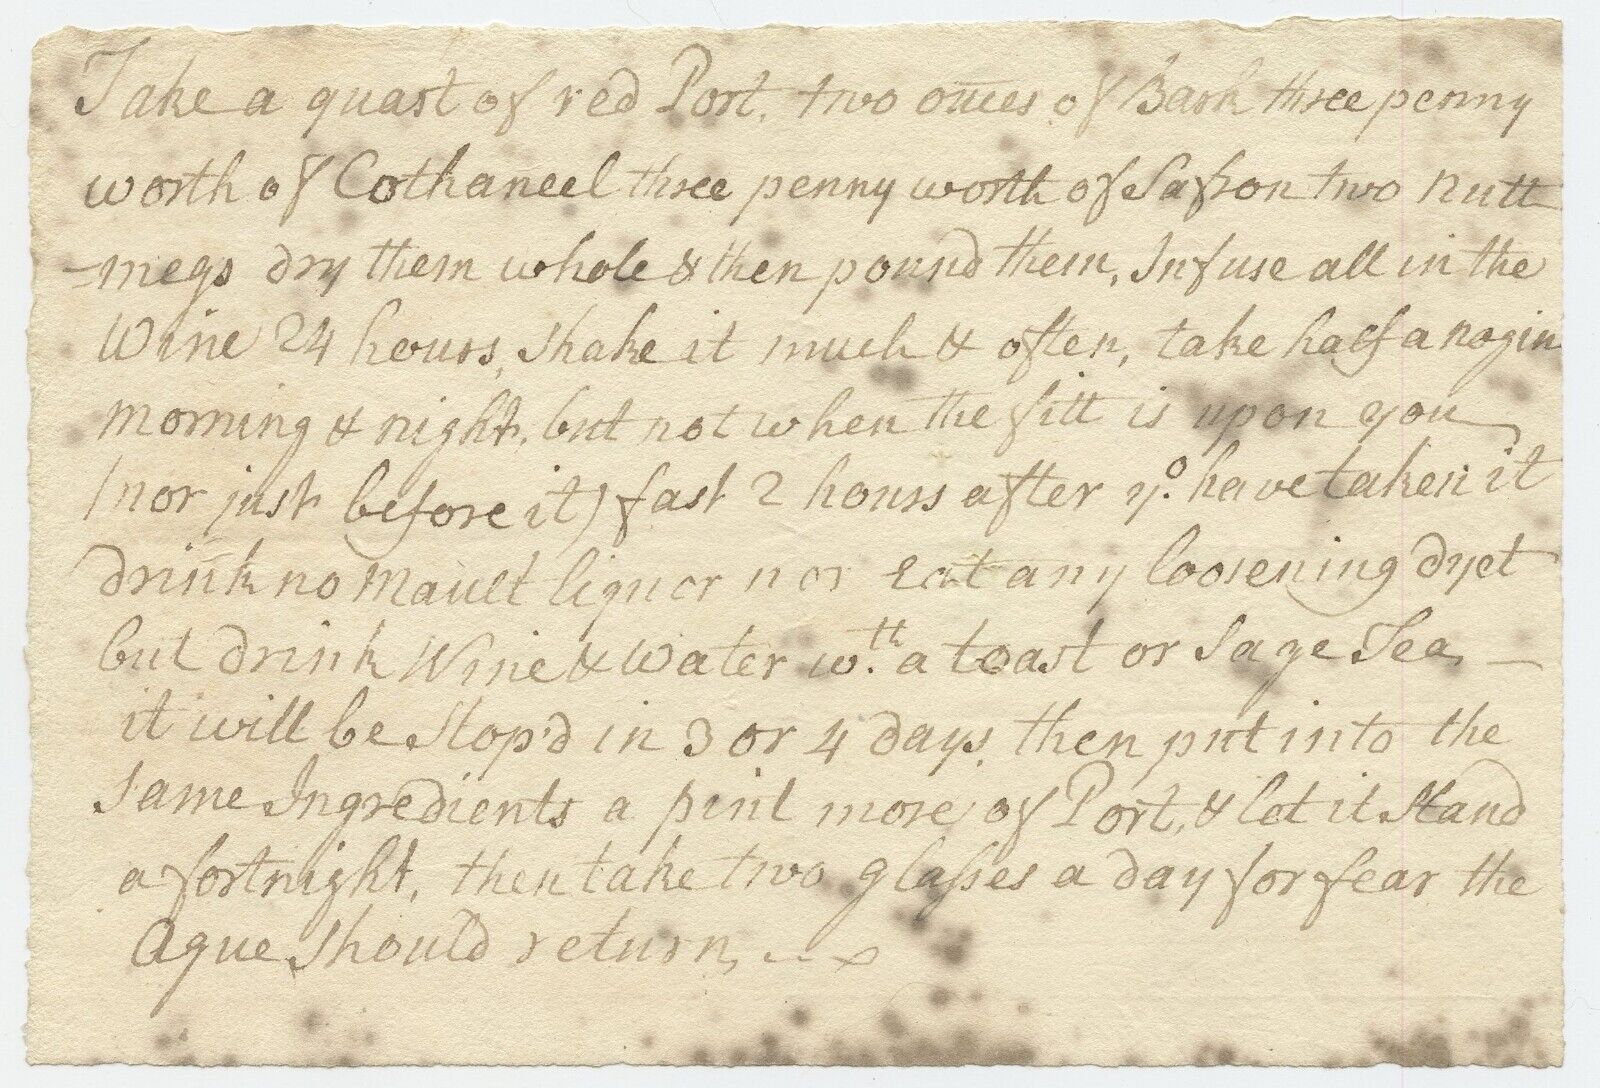 Take a quart of red Port, two ounces of Bark three penny
worth of Cothaneel three penny worth of Safron two nutt
=megs dry them whole & then pound them, Infuse all in the
Wine 24 hours, shake it much & often, take half a nogin
morning & night, but not when the fitt is upon you
(nor just before it) fast 2 hours after yo. have taken it
drink no Mault liquor nor eat any loosening dyet
but drink Wine & Water wth. a toast or Sage Tea, —
it will be Stop'd in 3 or 4 days, then put into the
same Ingredients a pint more of Port, & let it Stand
a fortnight, then take two glasses a day for fear the
Ague should return,